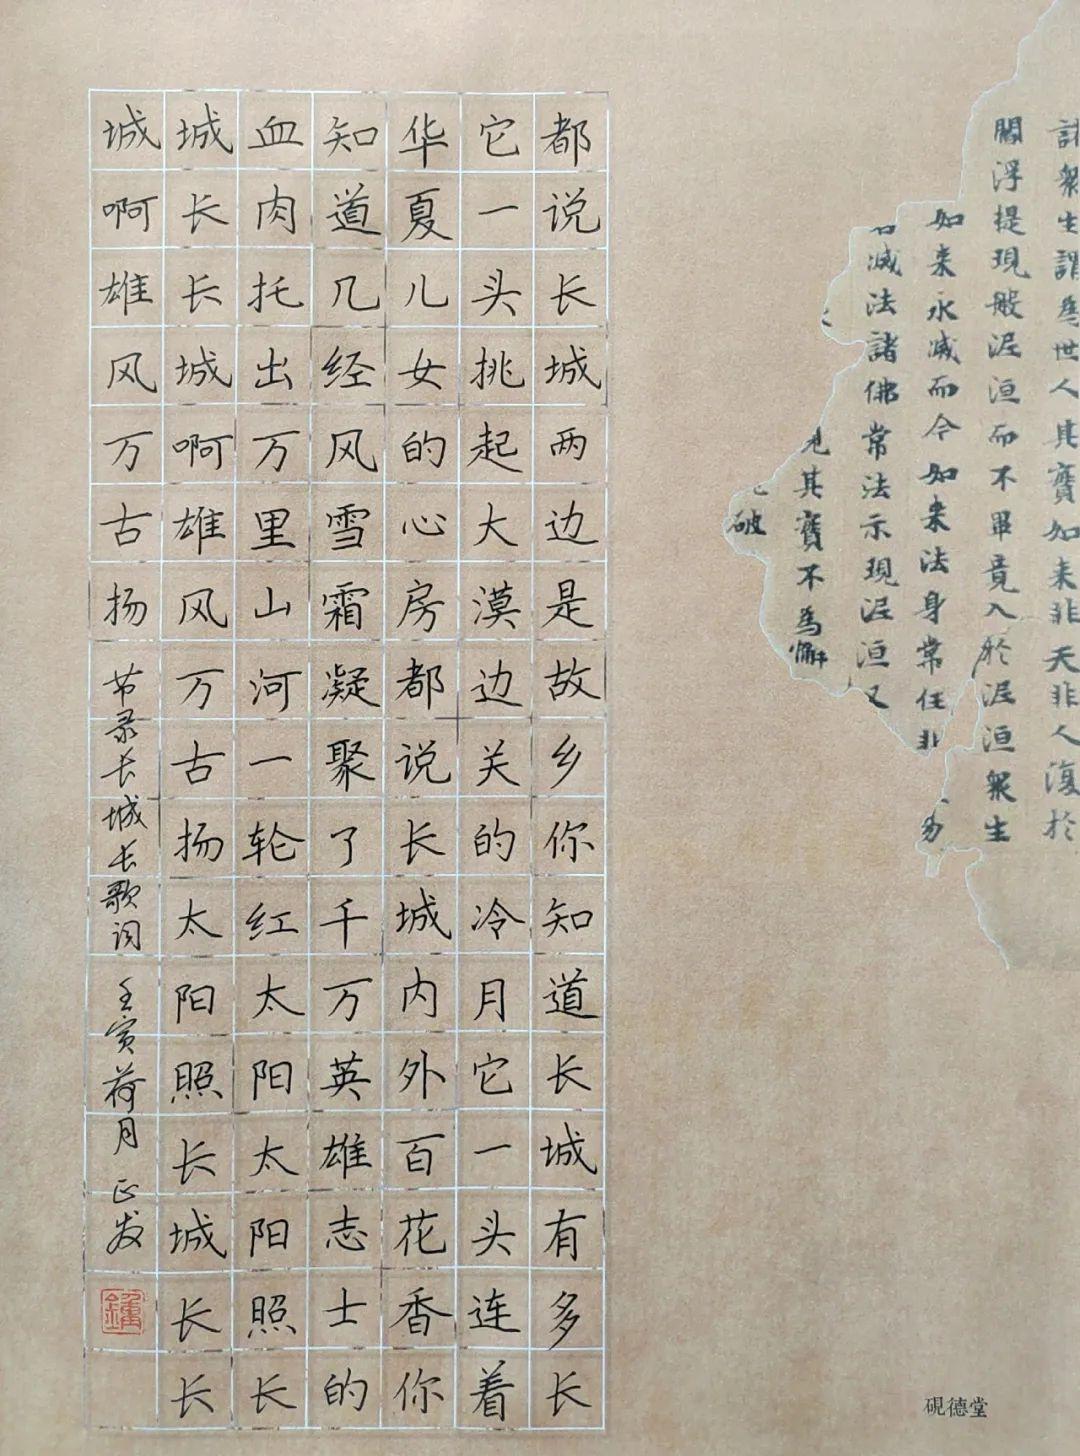 都说长城两边是故乡你知道长城有多长
它一头挑起大漠边关的冷月它一头连着
华夏儿女的心房都说长城内外百花香你
知道几经风雪霜凝聚了千万英雄志士的
血肉托出万里山河一轮红太阳太阳照长
城长长城啊雄风万古扬太阳照长城长长
城啊雄风万古扬
节录长城长歌词 壬寅荷月 正发
鍾
眾生謂為世人其寶如来非天非人復於
閻浮提現般泥洹而不畢竟入於泥洹眾生
如来永滅而今如来法身常住非
滅法諸佛常法示現泥洹又
其寶不為懈
破
砚德堂